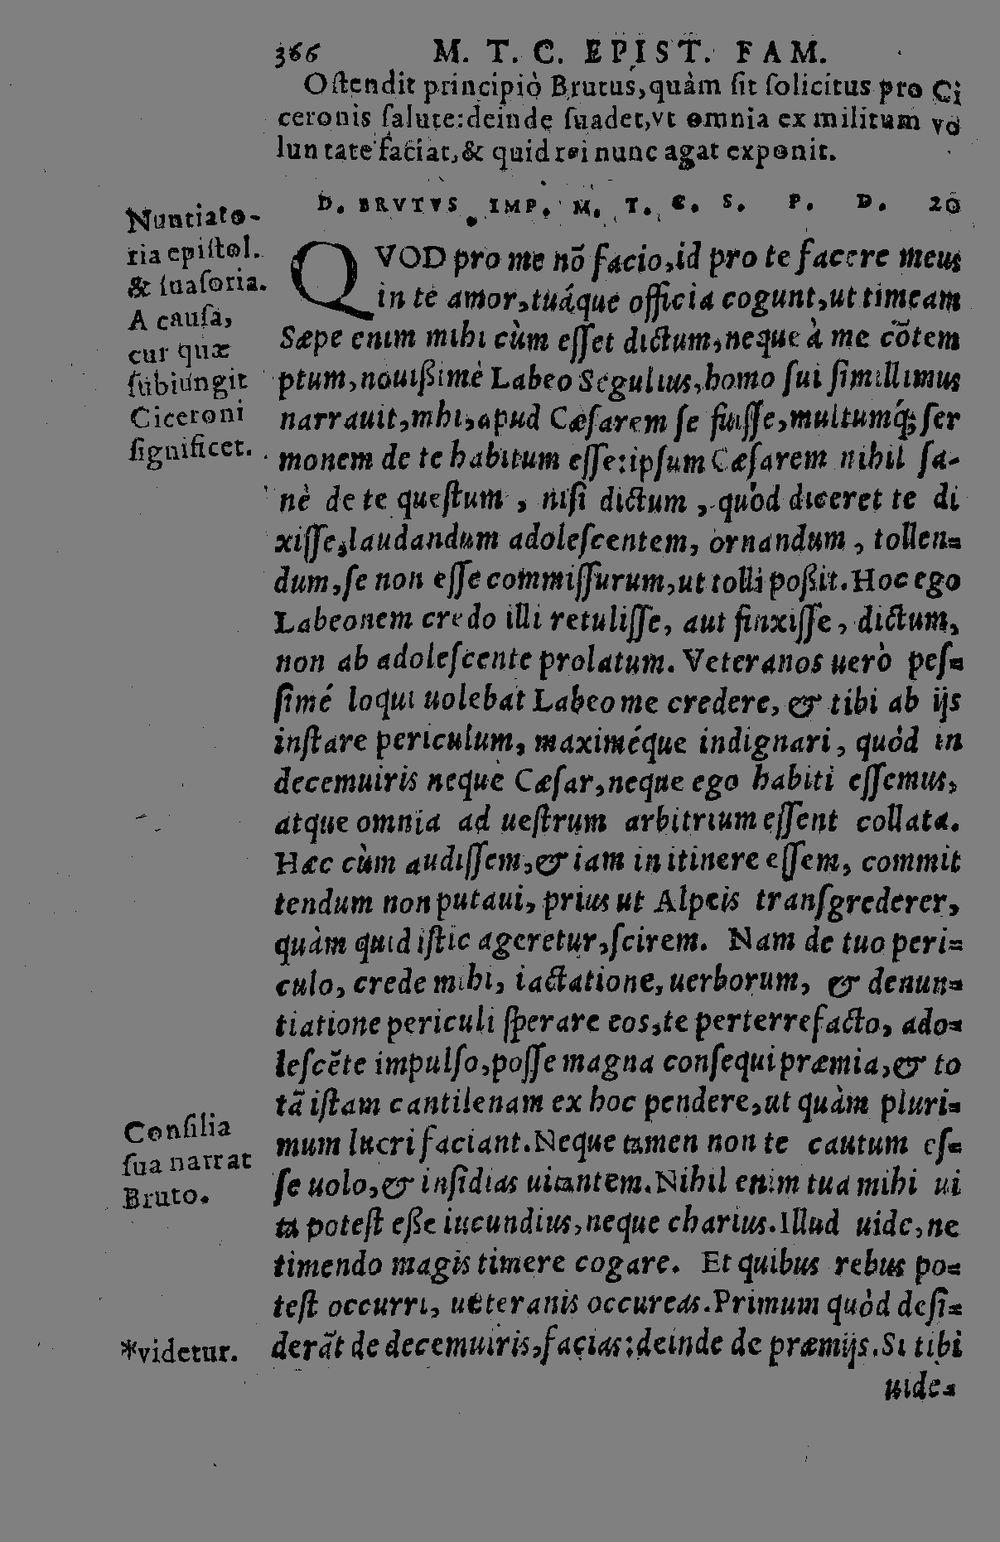 366 M. T. C. EPIST. FAM.
Oſtendit principiò Brutus, quàm ſit ſolicitus pro Ci
ceronis ſalute: deinde ſuadet, vt omnia ex militum vo
luntate faciat, & quid rei nunc agat exponit.
D. BRVTVS IMP. M. T. C. S. P. D. 20
Nuntiato-
ria epiſtol.
& ſuaſoria.
A cauſa,
cur quæ
ſubiungit
Ciceroni
ſignificet.
QVOD pro me nō facio, id pro te facere meus
in te amor, tuáque officia cogunt, ut timeam
Sæpe enim mihi cùm eſſet dictum, neque à me cōtem
ptum, nouißimè Labeo Segulius, homo ſui ſimillimus
narrauit, mhi, apud Cæſarem ſe fuiſſe, multumq́; ſer
monem de te habitum eſſe: ipſum Cæſarem nihil ſa-
nè de te queſtum, niſi dictum, quòd diceret te di
xiſſe, laudandum adoleſcentem, ornandum, tollen-
dum, ſe non eſſe commiſſurum, ut tolli poßit. Hoc ego
Labeonem credo illi retuliſſe, aut finxiſſe, dictum,
non ab adoleſcente prolatum. Veteranos uerò peſ-
ſimé loqui uolebat Labeo me credere, & tibi ab ijs
inſtare periculum, maximéque indignari, quòd in
decemuiris neque Cæſar, neque ego habiti eſſemus,
atque omnia ad ueſtrum arbitrium eſſent collata.
Hæc cùm audiſſem, & iam in itinere eſſem, commit
tendum non putaui, prius ut Alpeis tranſgrederer,
quàm quid iſtic ageretur, ſcirem. Nam de tuo peri-
culo, crede mihi, iactatione, uerborum, & denun-
tiatione periculi ſperare eos, te perterrefacto, ado-
leſcēte impulſo, poſſe magna conſequi præmia, & to
tā iſtam cantilenam ex hoc pendere, ut quàm pluri-
mum lucri faciant. Neque tamen non te cautum eſ-
ſe uolo, & inſidias uitantem. Nihil enim tua mihi ui
ta poteſt eße iucundius, neque charius. Illud uide, ne
timendo magis timere cogare. Et quibus rebus po-
teſt occurri, ueteranis occureas. Primum quòd deſi-
derāt de decemuiris, facias: deinde de præmijs. Si tibi
uide-
Conſilia
ſua narrat
Bruto.
*videtur.